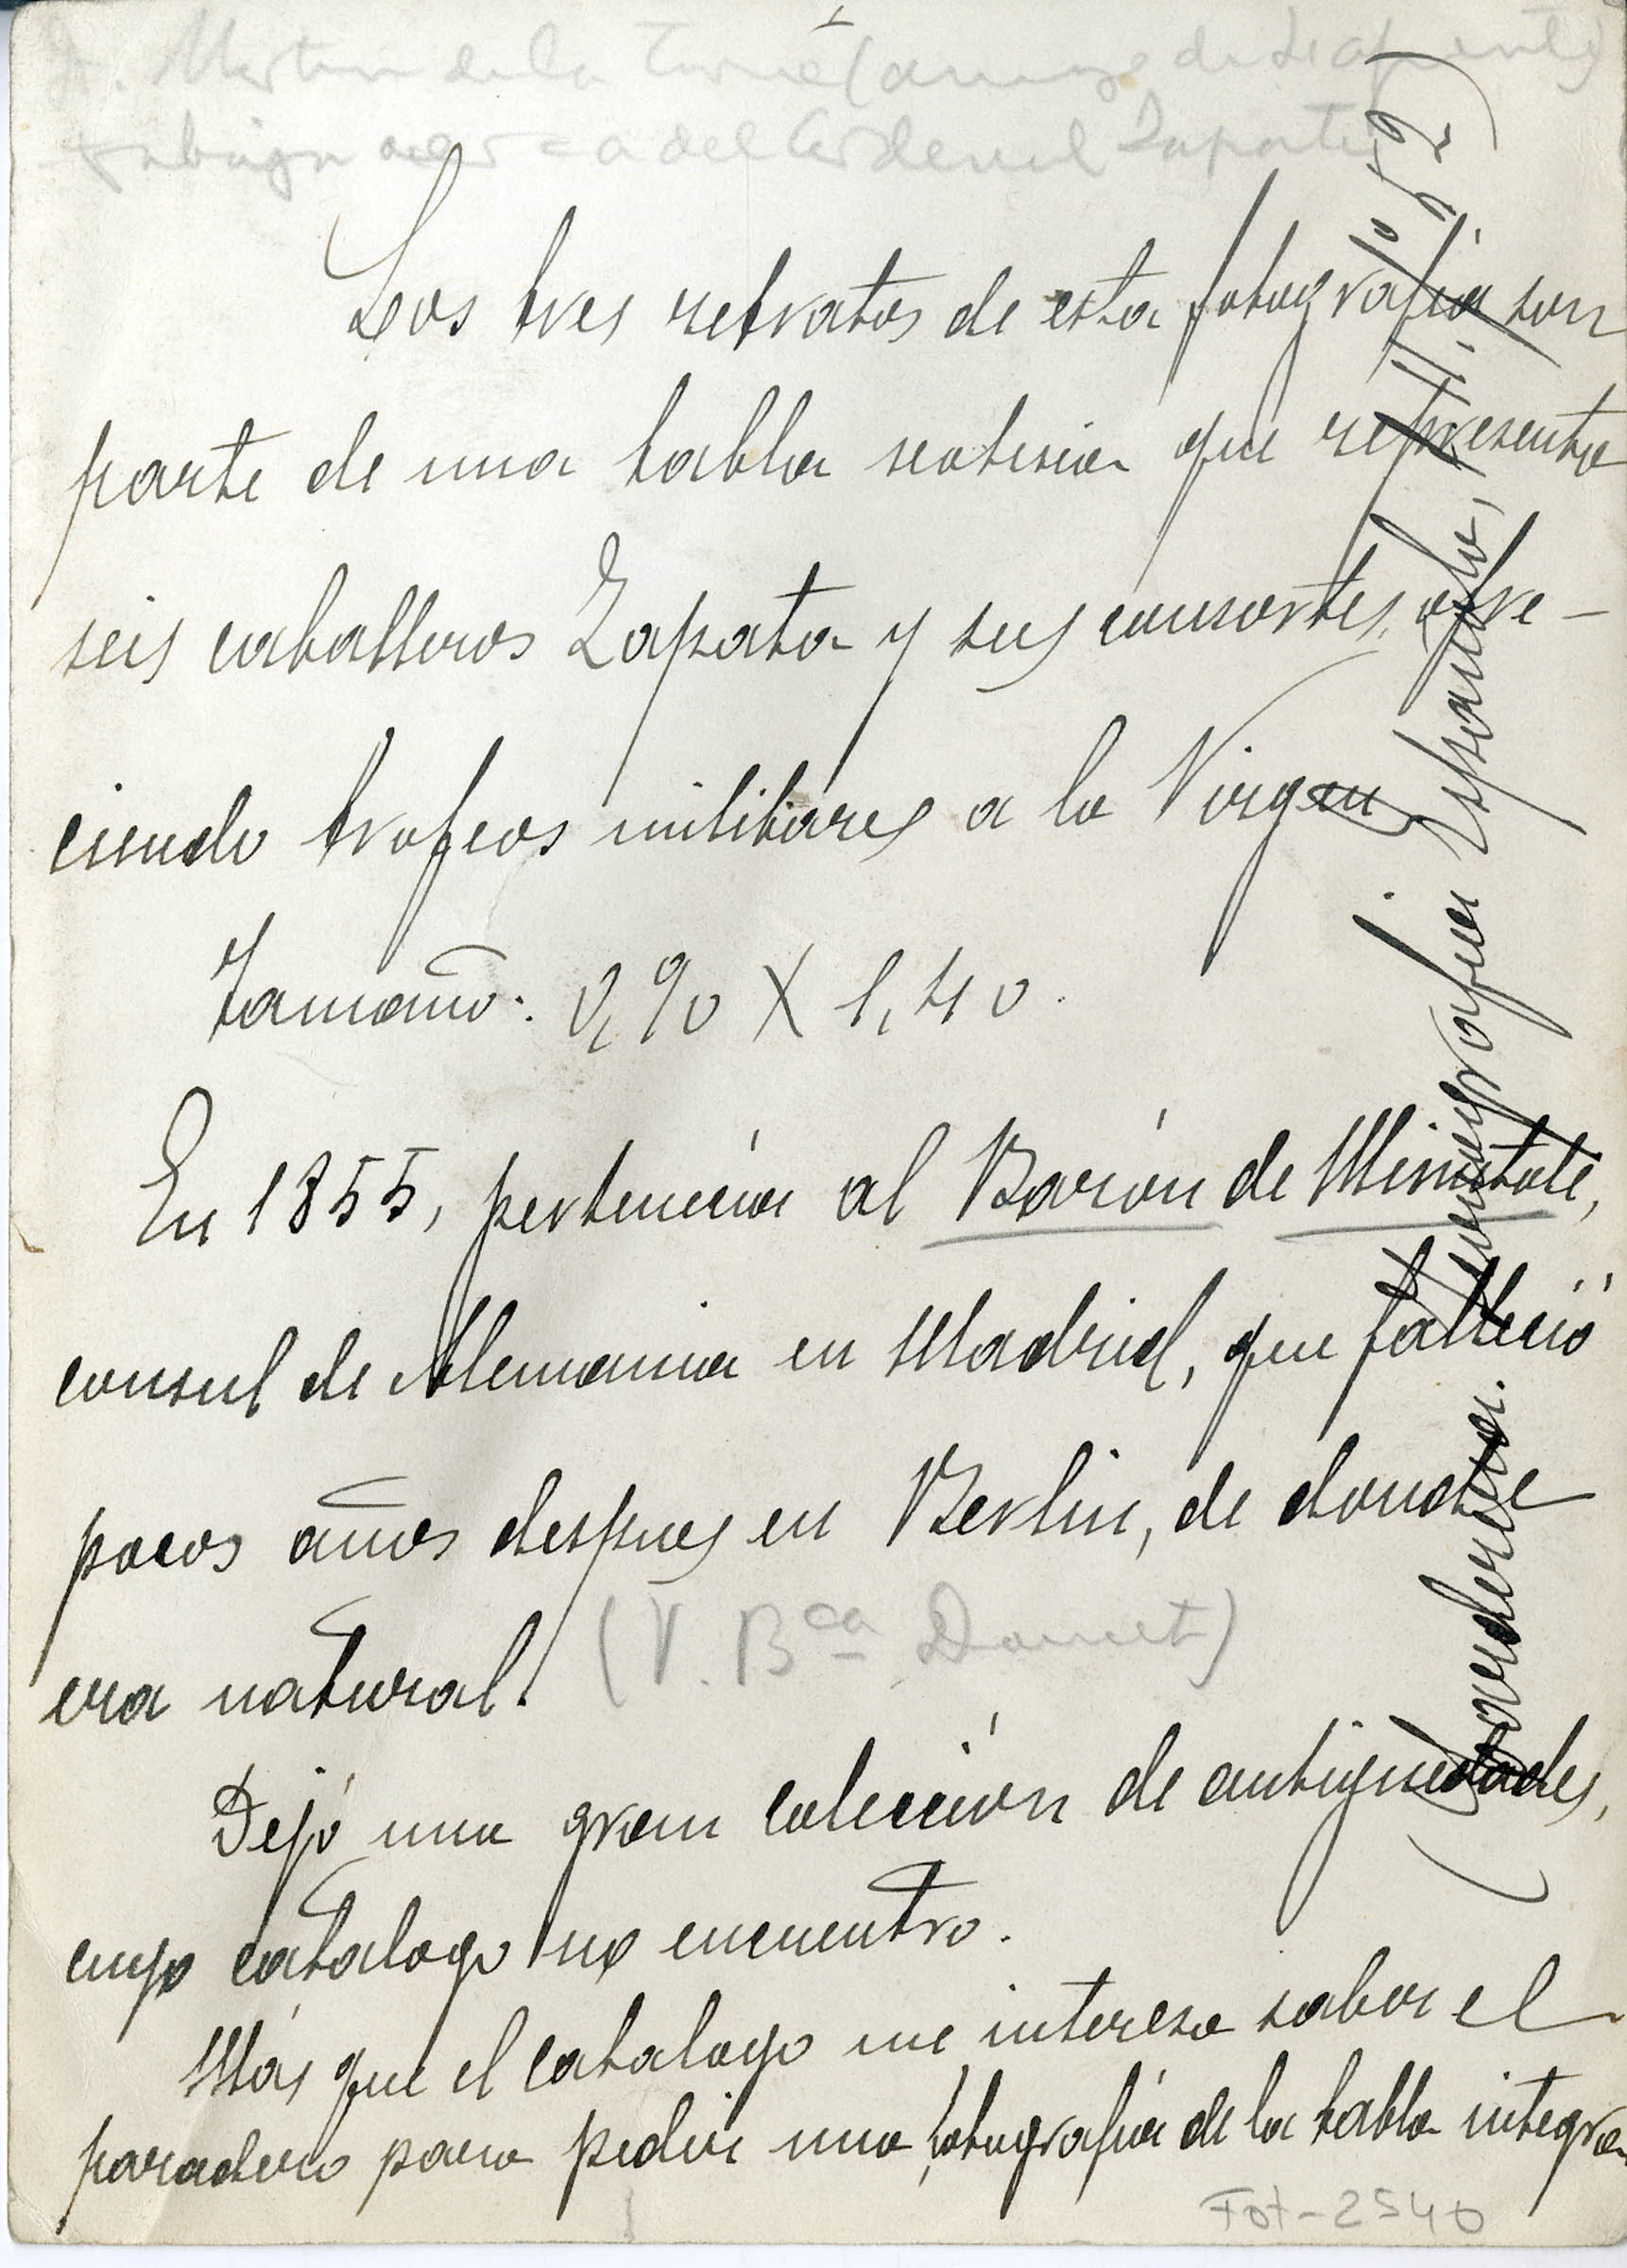 D. Martin de la Torre (amigo de Lafuente)
trabaja acerca del Cardenal Zapata
Los tres retratos de esta fotografía son
parte de una tabla que representa
seis caballeros Zapata y sus consortes, ofre-
ciendo trofeos militares a la Virgen
Tamaño: 0,90 X 1,40.
En 1855, pertenecía al Barón de Minutoli,
consul de Alemania en Madrid, que falleció
pocos años despues en Berlin, de donde
era natural. (V. Bca Dauset)
Dejó una gran colección de antiguedades,
cuyo catalogo no encuentro.
Más que el catalogo me interesa saber el
paradero para pedir una fotografía de la tabla integra
(Carderera. Iconografía Española, nº 52)
Fot-2540